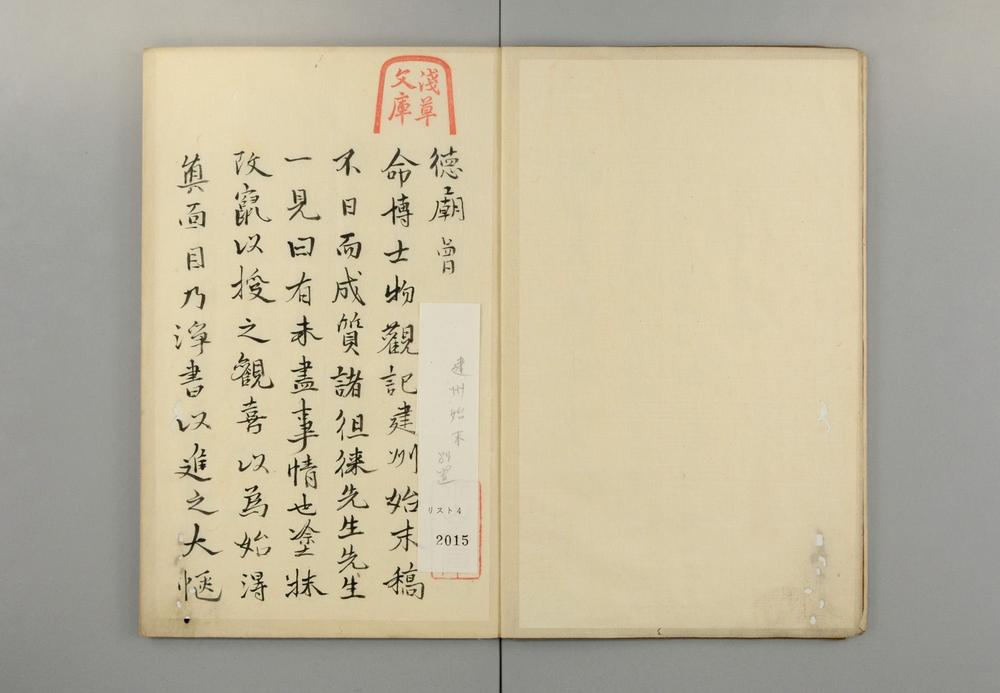 淺草
文庫
德廟曽
命博士物觀記建州始末稿
不日而成質諸徂徠先生先生
一見曰有未盡事情也塗抹
改竄以授之觀喜以爲始得
真面目乃淨書以進之大愜
建州始末
別置
リスト4
2015